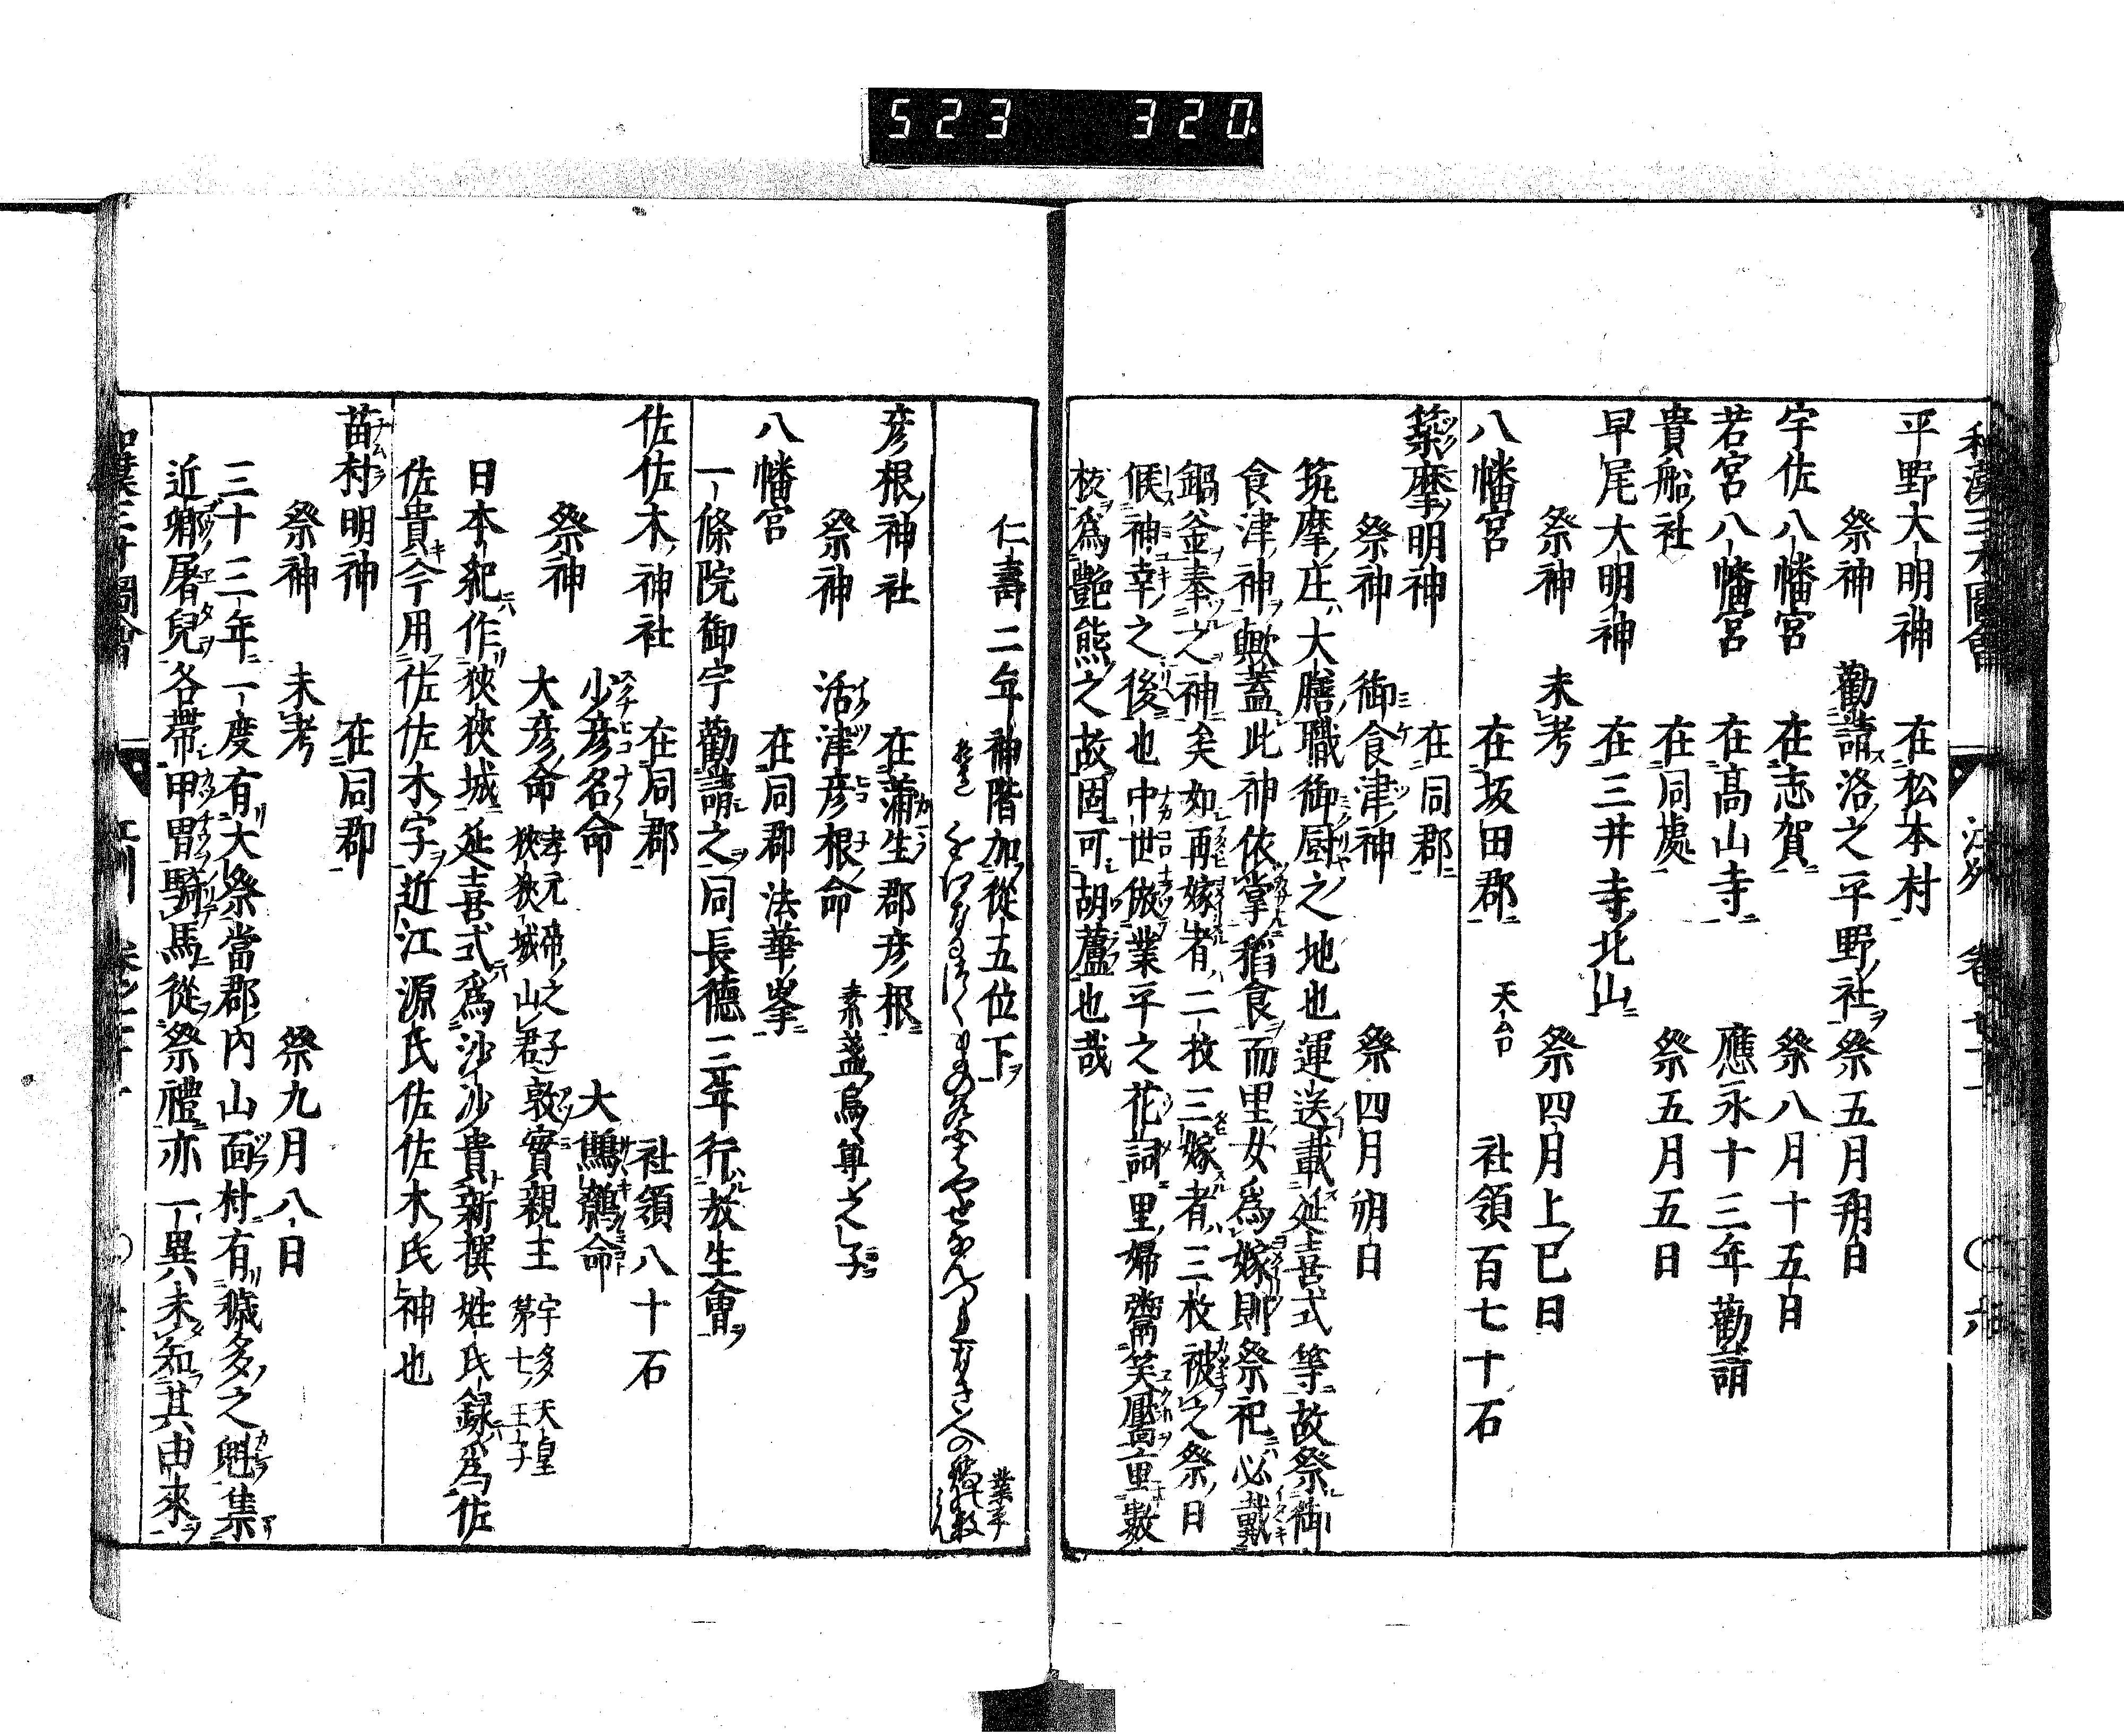 523 320.
和漢三才圖會 江州
平野大明神 在松本村
祭神 勸請洛之平野社 祭五月朔日
宇佐八幡宮 在志賀 祭八月十五日
若宮八幡宮 在髙山寺 應永十三年勸請
貴船社 在同處 祭五月五日
早尾大明神 在三井寺北山
祭神 未考 祭四月上巳日
八幡宮 在坂田郡 天台 社領百七十石
築摩明神 在同郡
祭神 御食津神 祭四月朔日
筑摩庄大膳職御厨之地也運送載延喜式等故祭御
食津神歟蓋此神依掌稻食而里女爲嫁則祭祀必戴
鍋釜奉之神矣如再嫁者二枚三嫁者三枚被之祭日
候神幸之後也中世倣業平之花詞里婦
枝爲艶態之故固可胡盧也哉
仁壽二年神階加從五位下
業平
彦根神社 在蒲生郡彦根
祭神 活津彦根命 素盞烏尊之子
八幡宮 在同郡法華峯
一條院御宇勸請之同長德三年行放生會
佐佐木神社 在同郡 社領八十石
少彦名命 大鷦鷯命
祭神
大彦命 孝元帝之子 狹狹城山君 敦實親王 宇多天皇 茅七王子
日本紀作狹狹城延喜式爲沙沙貴新撰姓氏録爲佐
佐貴今用佐佐木字近江源氏佐佐木氏神也
苗村明神 在同郡
祭神 未考 祭九月八日
三十三年一度有大祭當郡内山面村有穢多之魁集
近鄕屠兒各帶甲冑騎馬從祭禮亦一異未知其由來